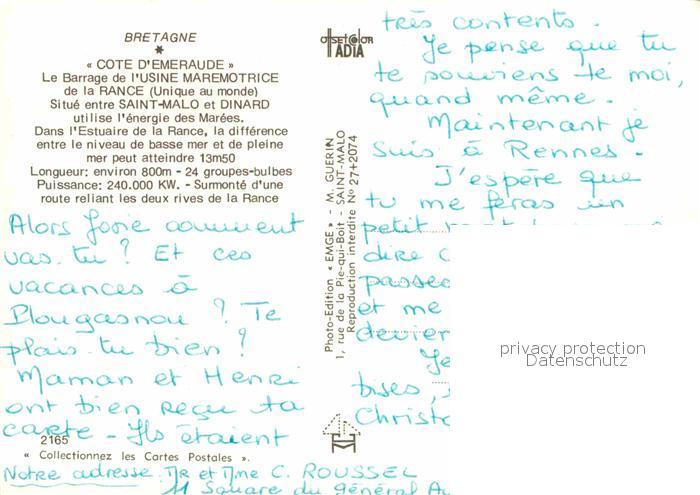 BRETAGNE
*
« COTE D'EMERAUDE »
Le Barrage de l'USINE MAREMOTRICE
de la RANCE (Unique au monde)
Situé entre SAINT-MALO et DINARD
utilise l'énergie des Marées.
Dans l'Estuaire de la Rance, la différence
entre le niveau de basse mer et de pleine
mer peut atteindre 13m50
Longueur: environ 800m - 24 groupes-bulbes
Puissance: 240.000 KW. - Surmonté d'une
route reliant les deux rives de la Rance
Alors Josie comment
vas-tu ? Et ces
vacances à
Plougasnou ? Te
plais-tu bien ?
Maman et Henri
ont bien reçu ta
carte - Ils étaient
2165
« Collectionnez les Cartes Postales ».
Notre adresse Mr et Mme C. ROUSSEL
11 Square du général
offset color
IADIA
Photo-Edition « EMGE » - M. GUERIN
1, rue de la Pie-qui-Boit - SAINT-MALO
Reproduction interdite No 27+2074
très contents.
Je pense que tu
te souviens de moi,
quand même.
Maintenant je
suis à Rennes.
J'espère que
tu me feras un
petit
dire
passe
et me
devier
Je
bises,
Christ
privacy protection
Datenschutz